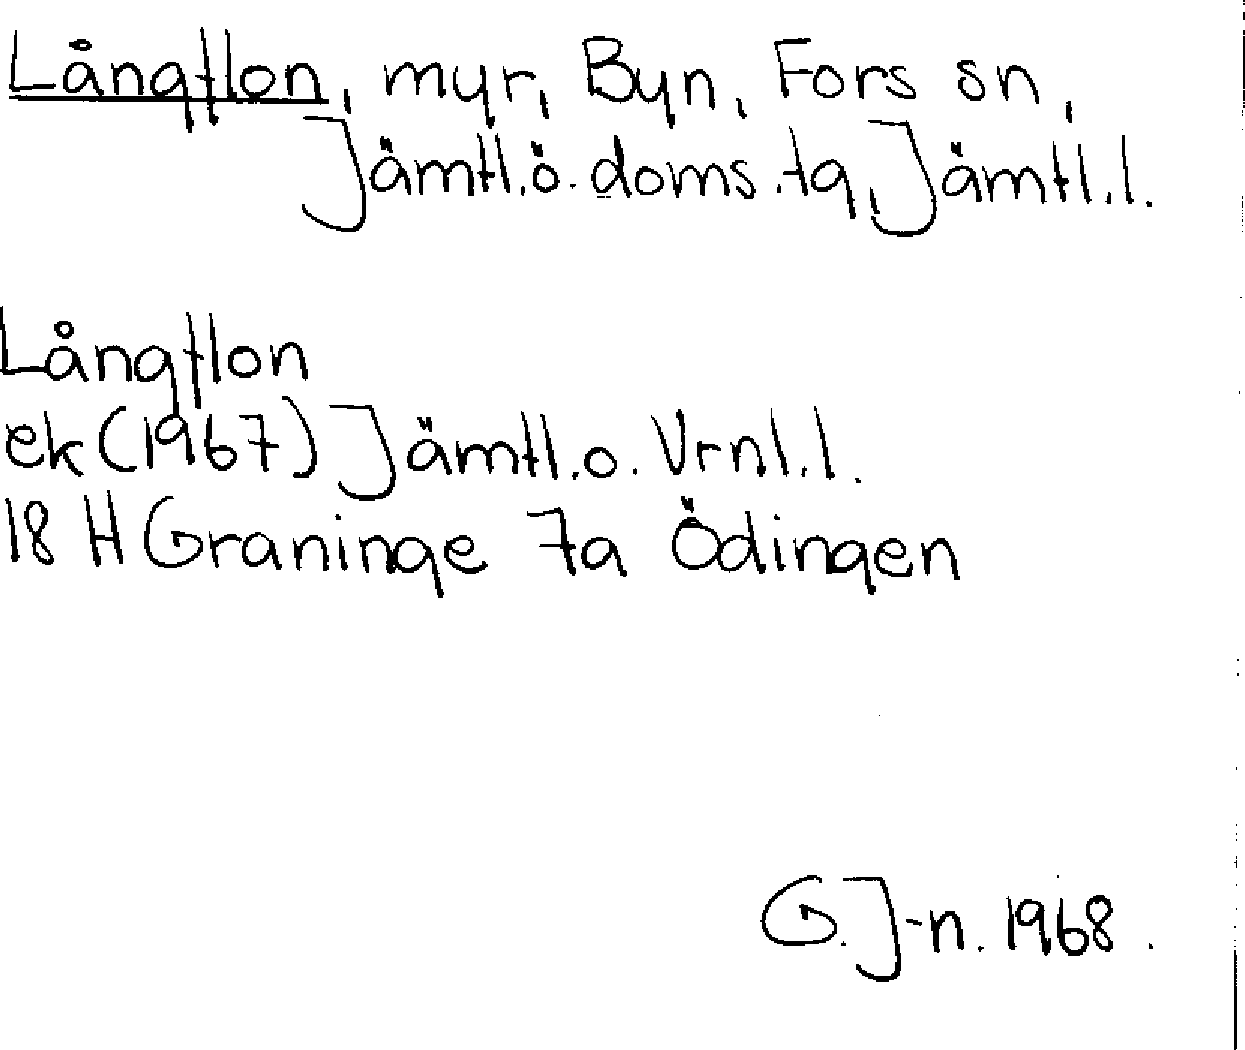 Långflon, myr, Byn, Fors sn,
Jämtl.ö. doms.tg, Jämtl.l.
Långflon
ek (1967) Jämtl.o. Vrnl.l.
18 H Graninge 7a Ödingen
G.J-n. 1968.